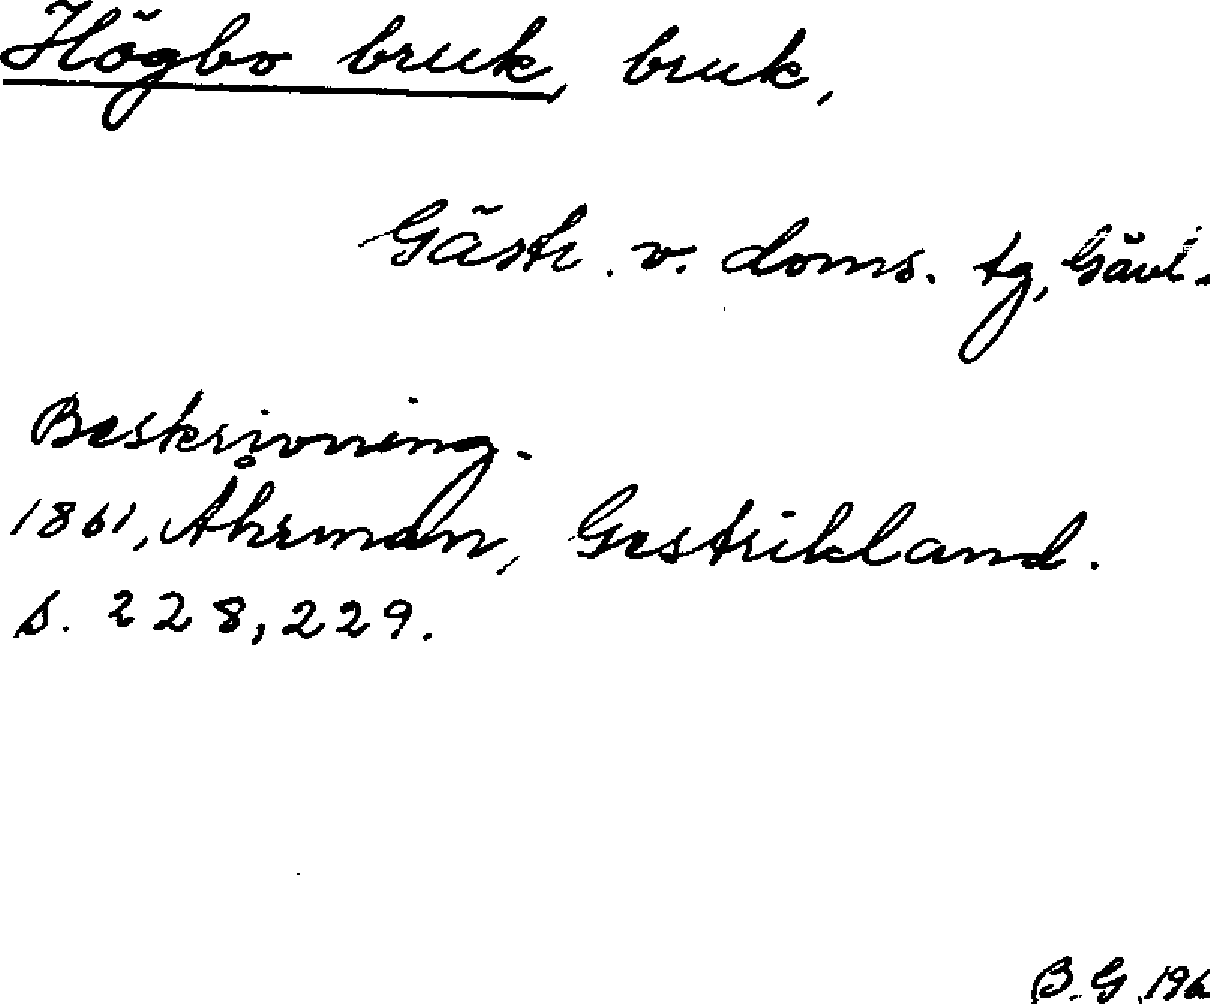 Högbo bruk, bruk,
Gästr. v. doms. tg, Gävl.
Beskrivning.
1861, Åhrman, Gestrikland.
s. 228, 229.
B.G. 196